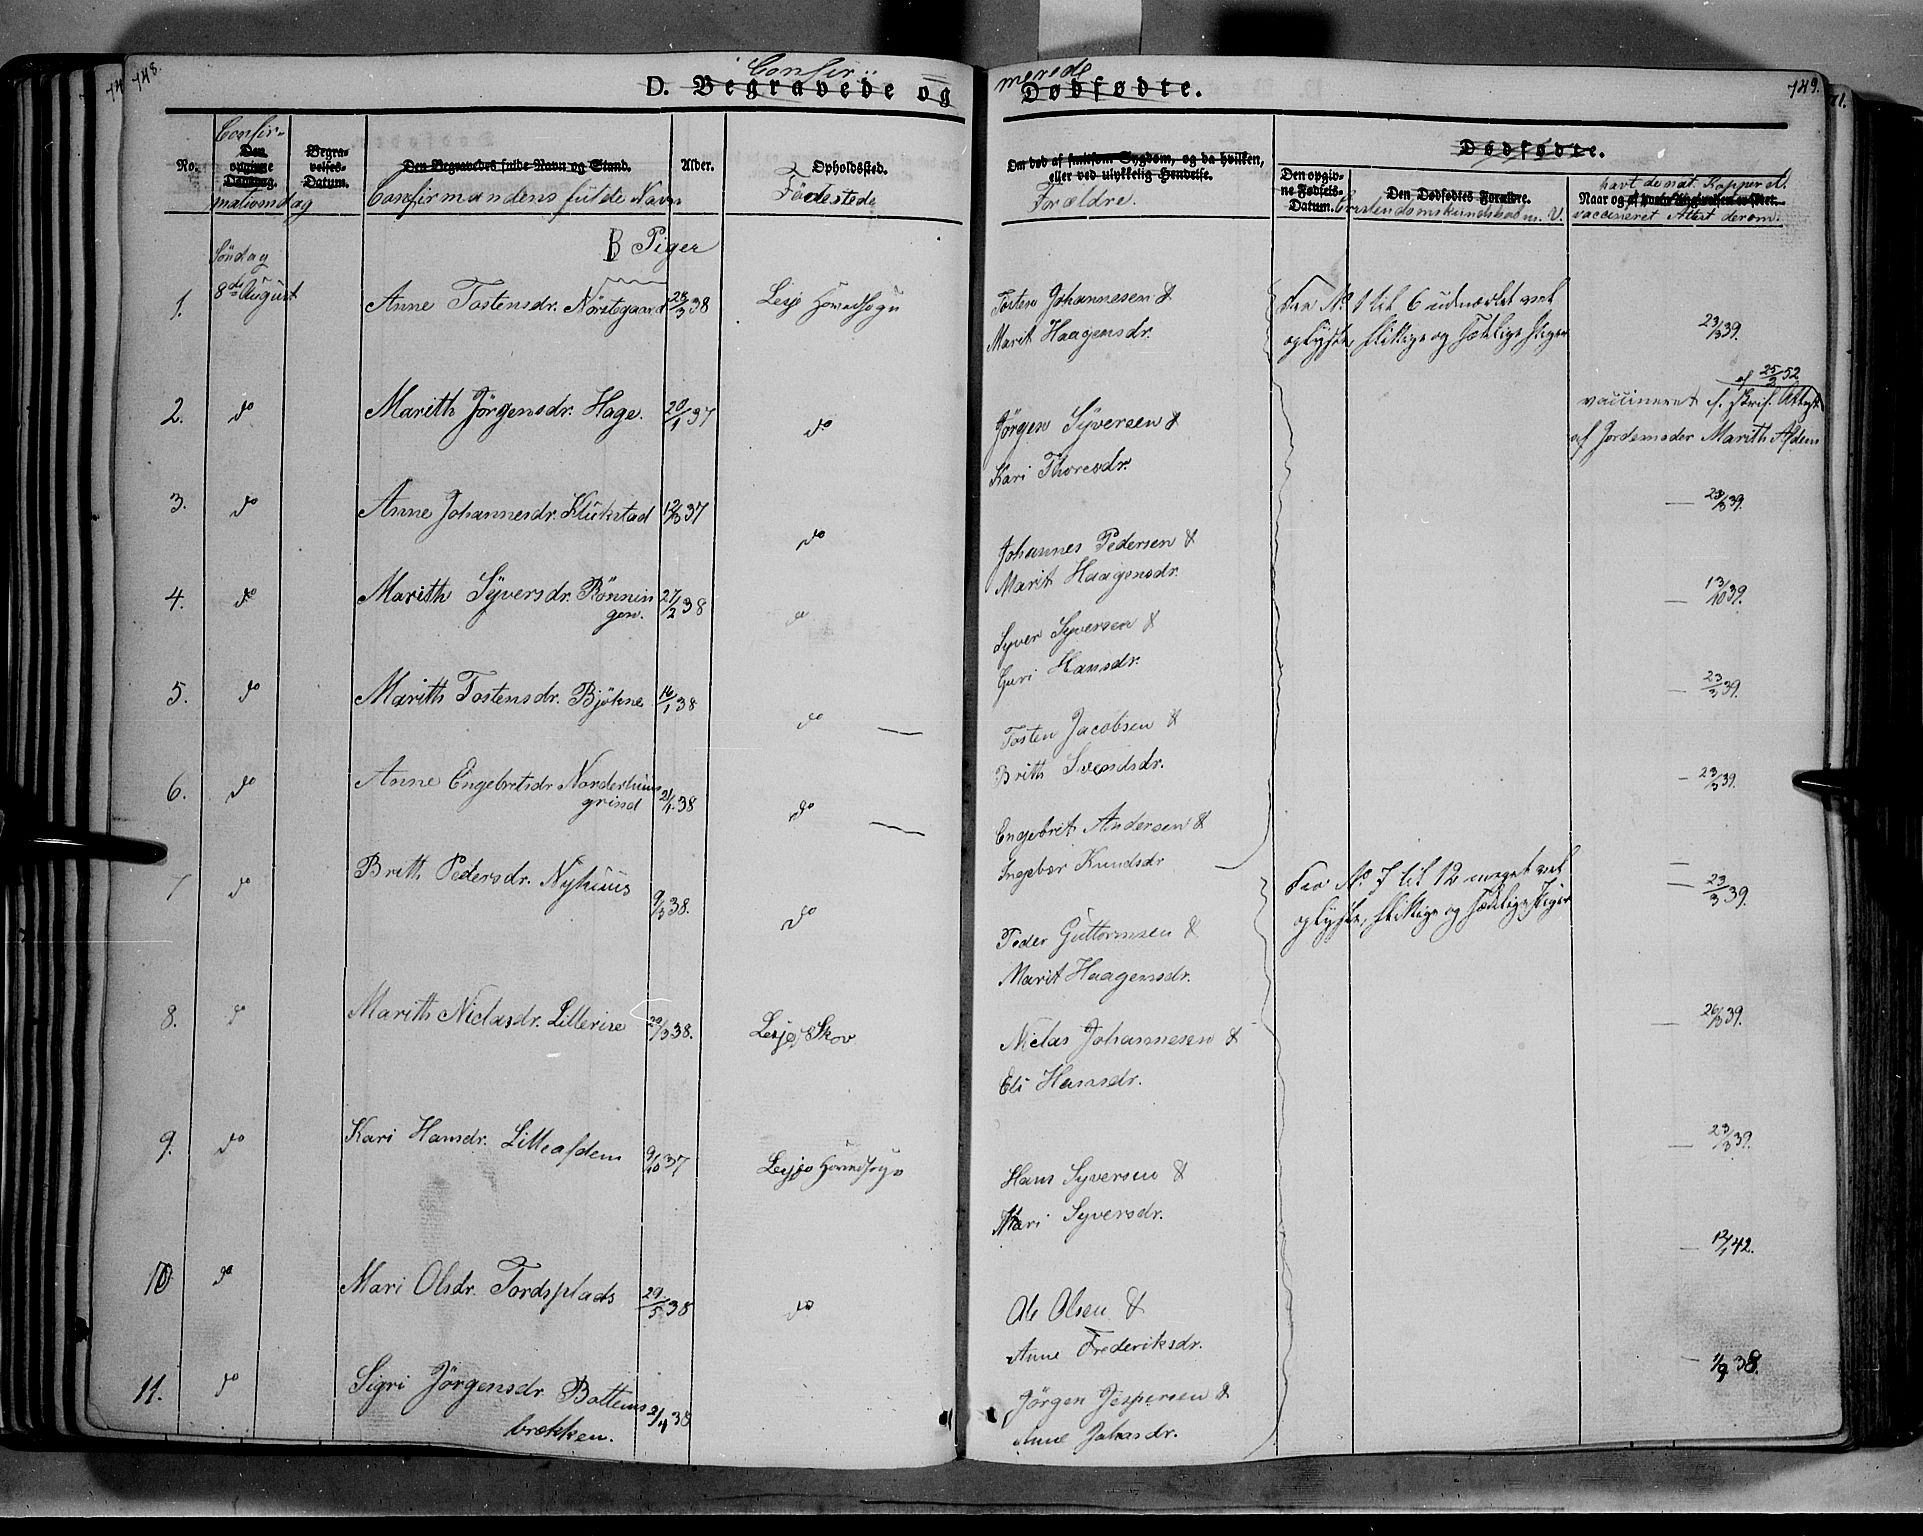 748.
Confir-
D. Begravede og
Confir-
No.
Den opgivne Dødsdag.
mationsdag
Begravelses-Datum.
Den Begravedes fulde Navn og Stand.
Confirmandens fulde Navn
Alder.
Opholdssted.
Födestede
B Piger
Söndag
8de August
1. Anne Tostensdr. Nörstegaard 23/3 38 Lesje Hovedsogn
2. do Marith Jörgensdr. Hage. 20/1 37 do
3. do Anne Johannesdr. Klukstad 12/3 37 do
4. do Marith Syversdr. Rönnin
gen. 27/2 38
5. do Marith Tostensdr. Björkne 16/1 38 do
6. do Anne Engebretsdr Norderhuus
grind 21/4 38 do
7 do Brith Pedersdr. Nyhuus 9/3 38. do
8. do Marith Niclasdr. Lillerise 20/3 38. Lesje Skov
9. do Kari Hansdr. Lilleafdem 9/10 37 Lesje Hovedsogn
10 do Mari Olsdr. Tordsplads 29/5 38 do
11. do Sigri Jörgensdr. Bottems
brækken. 2/4 38
merede
749.
Dødfødte.
Om død af smitsom Sygdom, og da hvilken,
eller ved ulykkelig Hendelse.
Forældre.
Dødfødte.
Den opgivne Fødsels-Datum.
Den Dødfødtes Forældre.
Christendomskundskab m. V.
havt de nat. Kopper el.
Naar og af
vaccineret Attest derom.
Tosten Johannesen &
Marit Haagensdr.
Fra No 1 til 6 udmærket vel
oplyste, flittige og sædelige Piger
23/3 39.
Jörgen Syversen &
Kari Thoresdr.
af 25/3 52
vaccineret f. skrif. Attest
af Jordemoder Marith Afdem
Johannes Pedersen &
Marit Haagensdr.
— 23/3 39.
Syver Syversen &
Guri Hansdr.
— 13/10 39.
Tosten Jacobsen &
Brith Svendsdr.
— 23/3 39.
Engebrit Andersen &
Ingebor Knudsdr
— 23/3 39.
Peder Guttormsen &
Marit Haagensdr.
Fra No 7 til 12 meget vel
oplyste, flittige og sædelige Piger
— 23/3 39.
Niclas Johannesen &
Eli Hansdr.
— 26/3 39.
Hans Syversen &
Mari Syversdr.
— 23/3 39.
Ole Olsen &
Anne Frederiksdr.
— 12/1 42.
Jörgen Jespersen &
Anne Johasdr.
— 1/9 38.